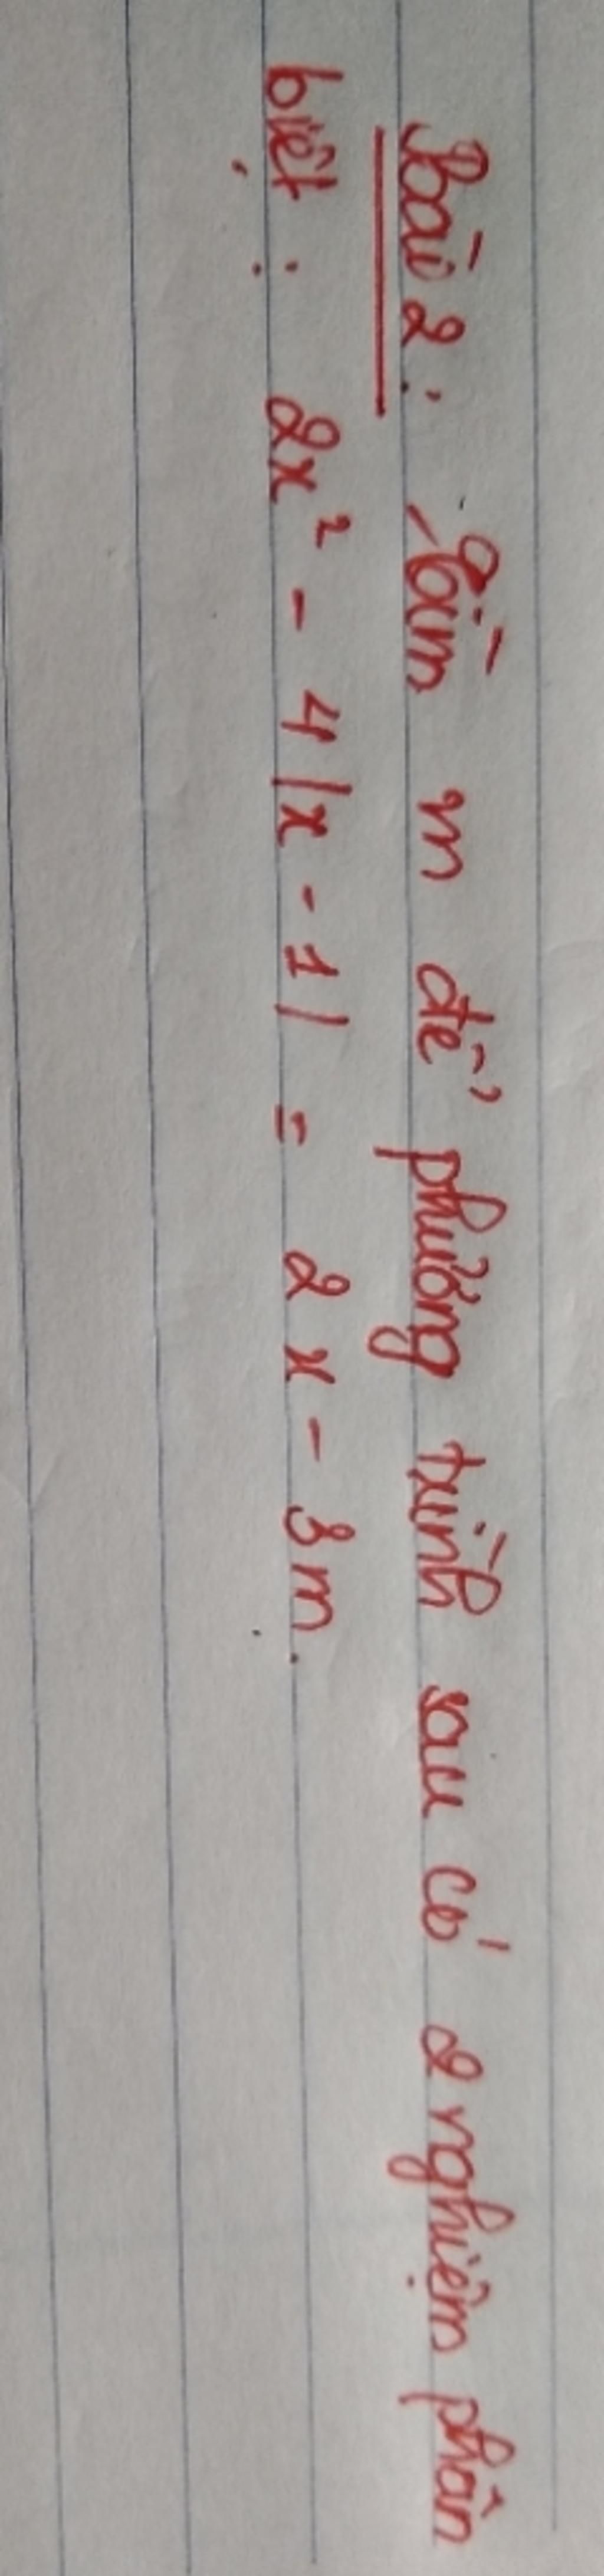 Bài 2: Tìm m để phương trình sau có 2 nghiệm phân
biệt: 2x² - 4|x - 1| = 2x - 3m.